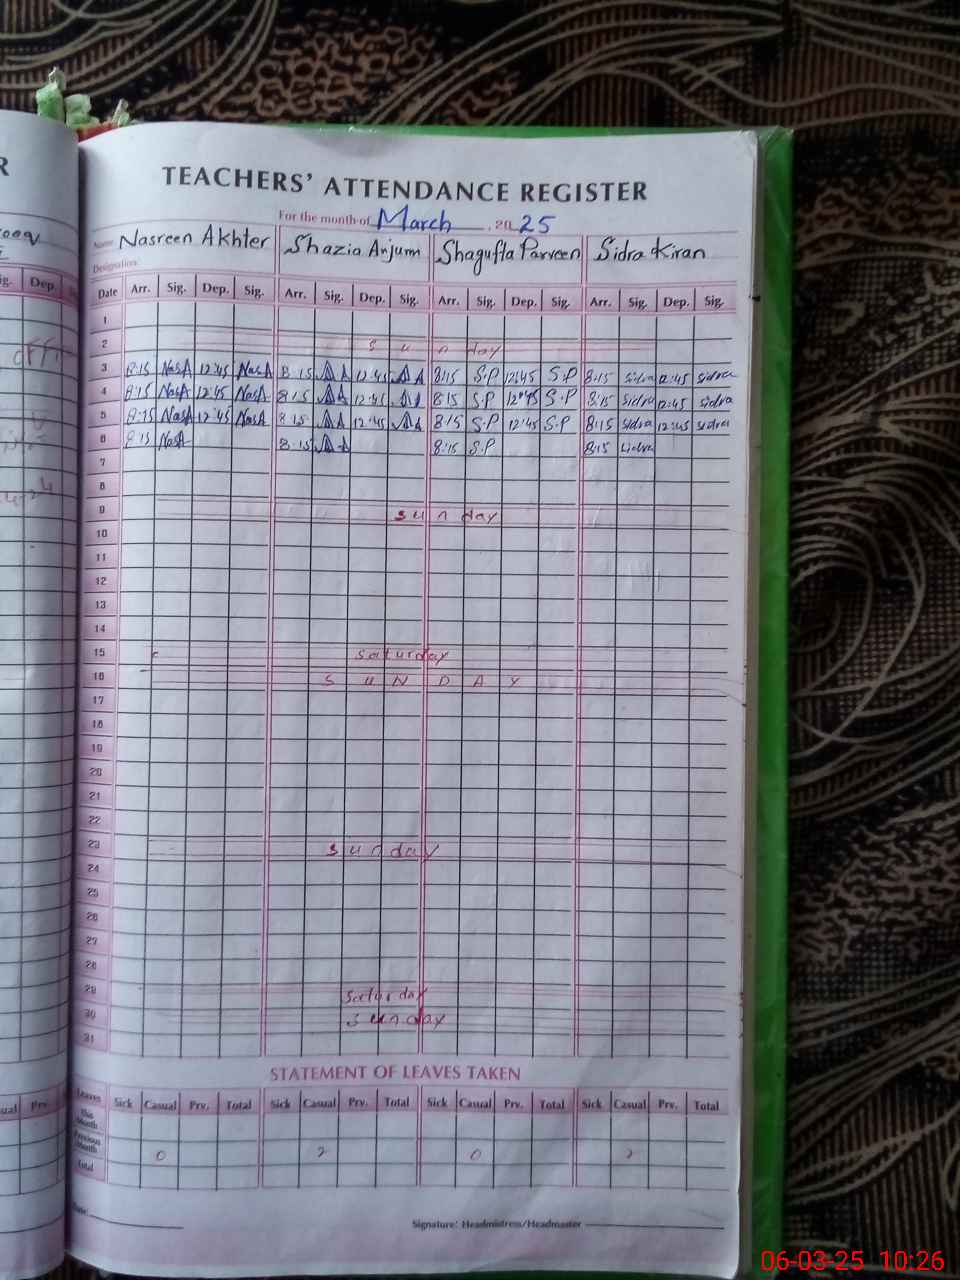 R
TEACHERS' ATTENDANCE REGISTER
For the month of March , 20 25
Name Nasreen Akhter Shazia Anjum Shagufta Parveen Sidra Kiran
Designation:
Dep.
Date Arr. Sig. Dep. Sig. Arr. Sig. Dep. Sig. Arr. Sig. Dep. Sig. Arr. Sig. Dep. Sig.
1
2 Sunday
3 8:15 NasA 12:45 NasA 8:15 12:45 8:15 S.P 12:45 S.P 8:15 Sidra 12:45 Sidra
4 8:15 NasA 12:45 NasA 8:15 12:45 8:15 S.P 12:45 S.P 8:15 Sidra 12:45 Sidra
5 8:15 NasA 12:45 NasA 8:15 12:45 8:15 S.P 12:45 S.P 8:15 Sidra 12:45 Sidra
6 8:15 NasA 8:15 8:15 S.P 8:15 Sidra
7
8
9 Sunday
10
11
12
13
14
15 Saturday
16 SUNDAY
17
18
19
20
21
22
23 Sunday
24
25
26
27
28
29 Saturday
30 Sunday
31
STATEMENT OF LEAVES TAKEN
Leaves Sick Casual Prv. Total Sick Casual Prv. Total Sick Casual Prv. Total Sick Casual Prv. Total
This Month
Previous Month 0 2 0 2
Total
Date:
Signature: Headmistress/Headmaster
06-03-25 10:26